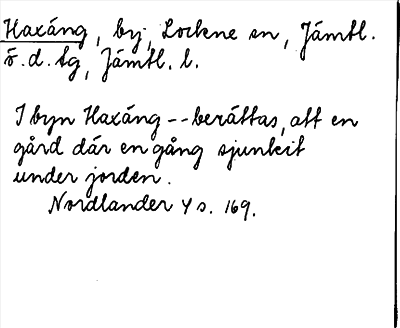 Haxäng, by, Lockne sn, Jämtl.
ö. d. tg, Jämtl. l.
I byn Haxäng -- berättas, att en
gård där en gång sjunkit
under jorden.
Nordlander 4 s. 169.